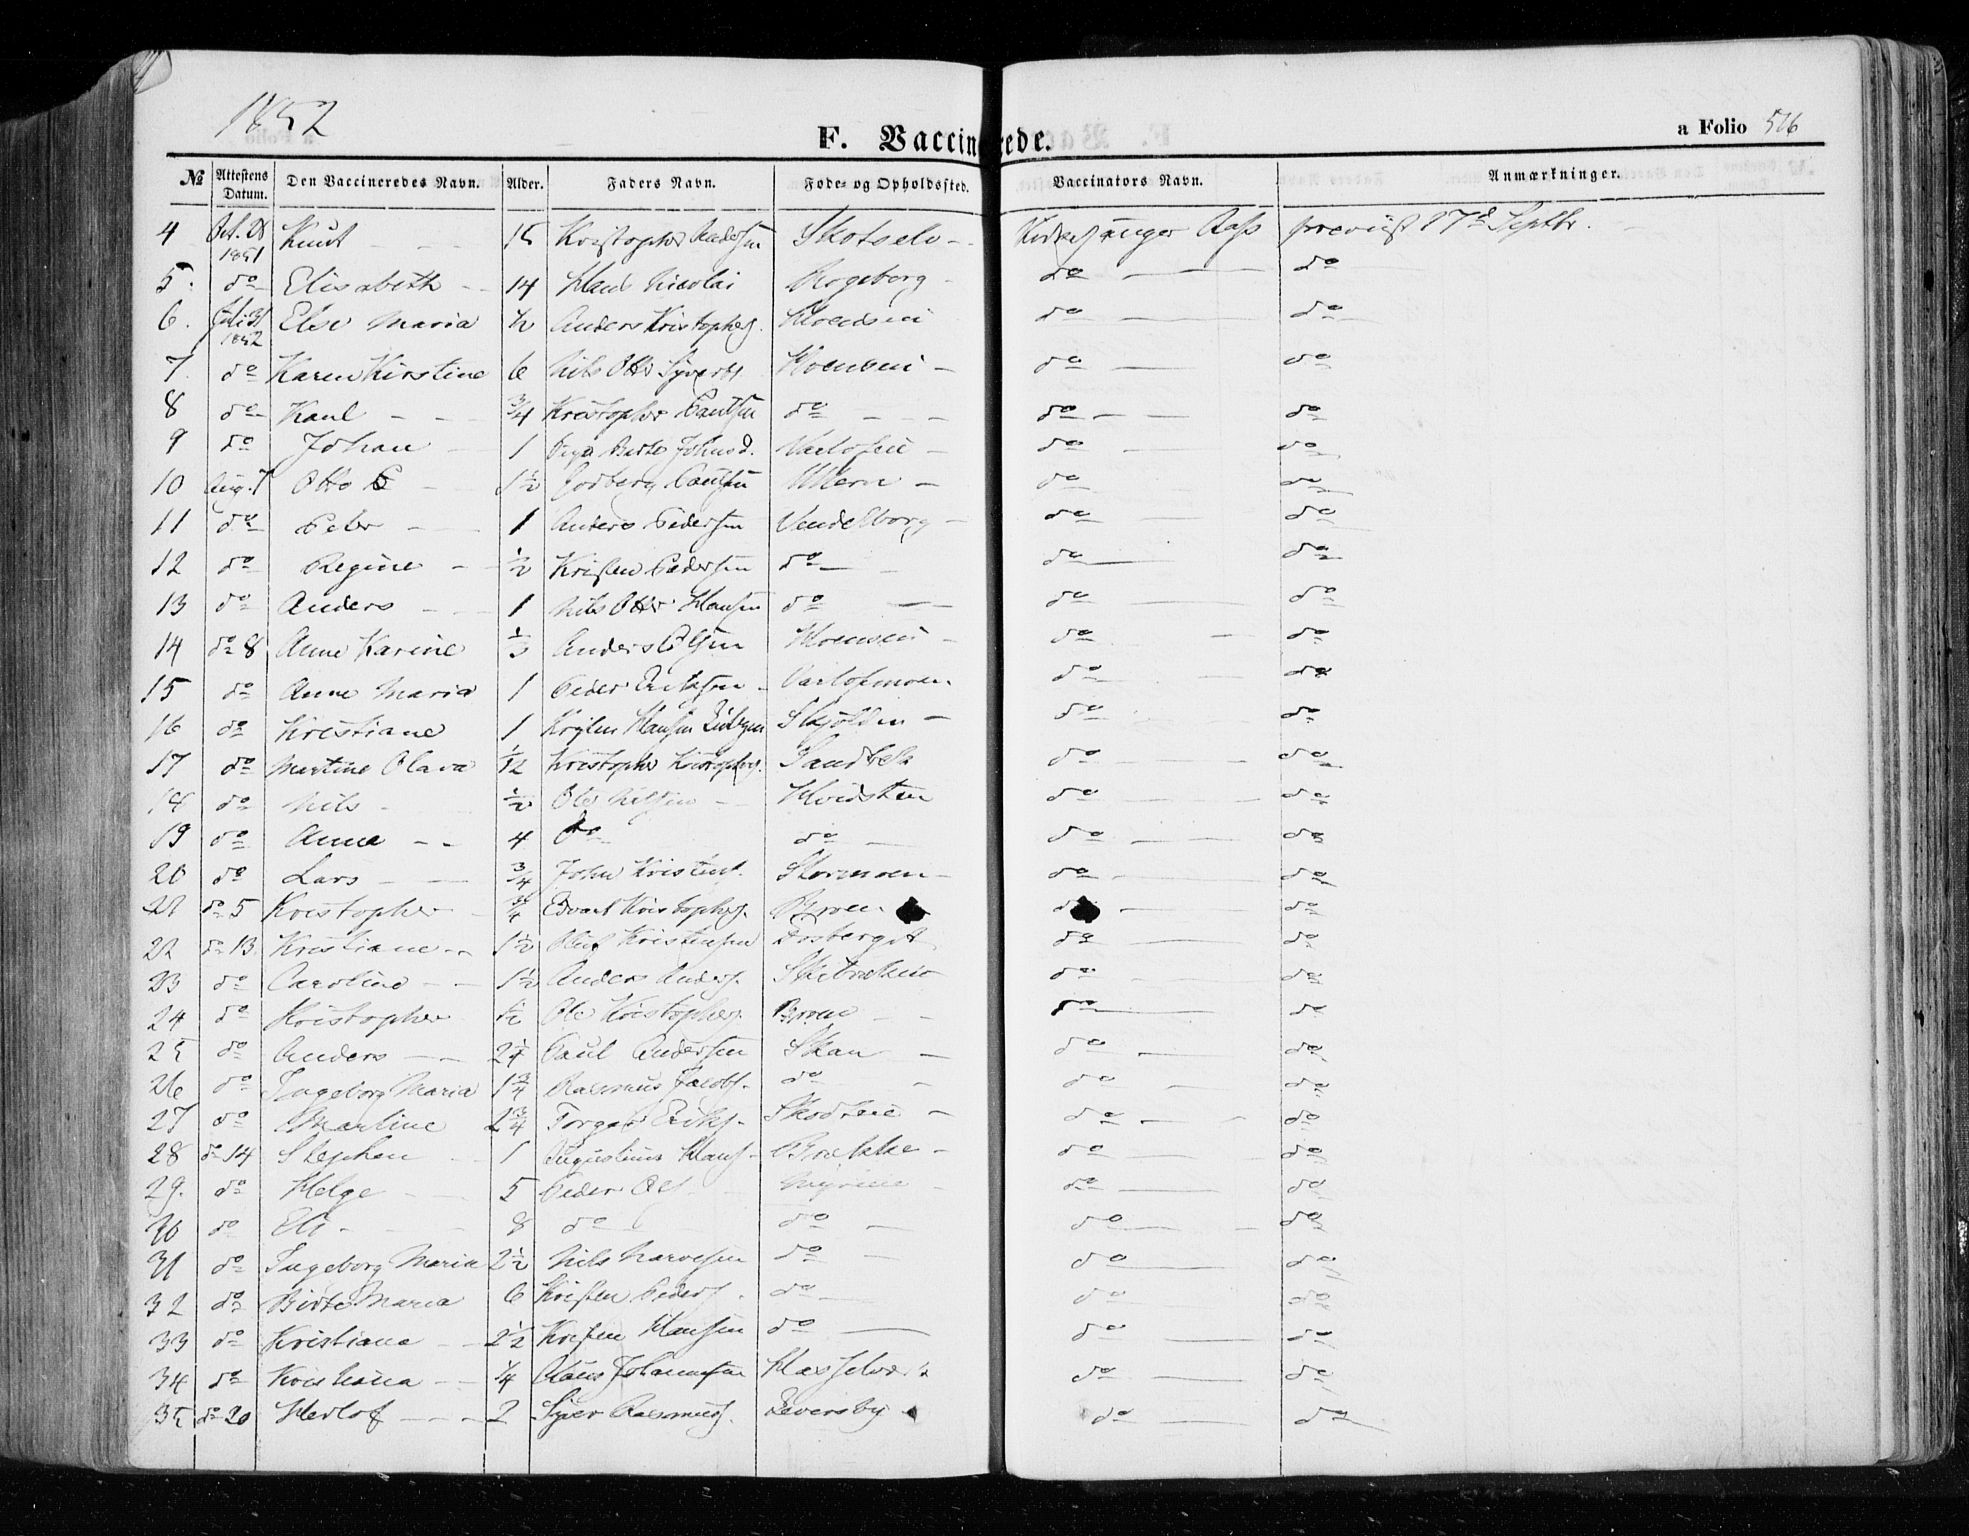 1852
F. Vaccinerede.
a Folio 516
№ Attestens Datum. Den Vaccineredes Navn. Alder. Faders Navn. Føde- og Opholdssted. Vaccinators Navn. Anmærkninger.
4 Oct. 28 1851 Knut 15 Kristopher Andersen Skotselv Kirkesanger Aass 17de Septbr.
5. do Elisabeth 14 Hans Nicolai Rogeberg do do
6. Juli 31 1852 Else Maria ½ Anders Kristophers. Hoensei do do
7. do Karen Kirstine 6 Nils Otto Syverts Hoensei do do
8 do Karl ¾ Kristopher Paulsen do do do
9 do Johan 1 Pige Birte Johnsd. Varlosie do do
10 Aug. 7 Otto 1½ Gorberg Paulsen Ulleren do do
11 do Peter 1 Anders Pedersen Vendelborg do do
12 do Regine ½ Kristen Pedersen do do do
13 do Anders 1 Nils Otto Hansen do do do
14 do 8 Anne Karine ⅓ Anders Olsen Hoensei do do
15 do Anne Maria 1 Peder Eriksen Varlosmoen do do
16 do Kristiane 1 Kristen Hansen Skjolden do do
17 do Martine Olava 1/12 Kristopher Kristophers. Sandbek do do
18 do Nils ½ Ole Nilsen Hvidsten do do
19 do Anne 4 do do do do
20 do Lars ¾ John Kristens. Stormoen do do
21 do 5 Kristopher ¾ Edvart Kristophers. Broen do do
22 do 13. Kristiane 1½ Oluf Kristensen Dosberget do do
23 do Caroline 1½ Anders Anders. do do
24 do Kristopher ½ Ole Kristophers. Broen do do
25 do Anders 2¼ Paul Andersen Skan do do
26 do Ingeborg Maria 1¾ Rasmus Jacobs. do do do
27 do Martine 2¾ Torger Eriks. do do
28 do 14 Stephen 1 Augustinus Hans. Brekke do do
29. do Helge 5 Peder Ols. Myrene do do
30 do Eli 8 do do do do
31 do Ingeborg Maria 2½ Nils Narvesen do do do
32 do Birte Maria 6 Kristen Peders. do do do
33 do Kristiane 2½ Kristen Hansen do do do
34 do Kristiana ¼ Claus Johannesen do do
35 do 20 Herlof 2 Syver Rasmus. Beversby do do